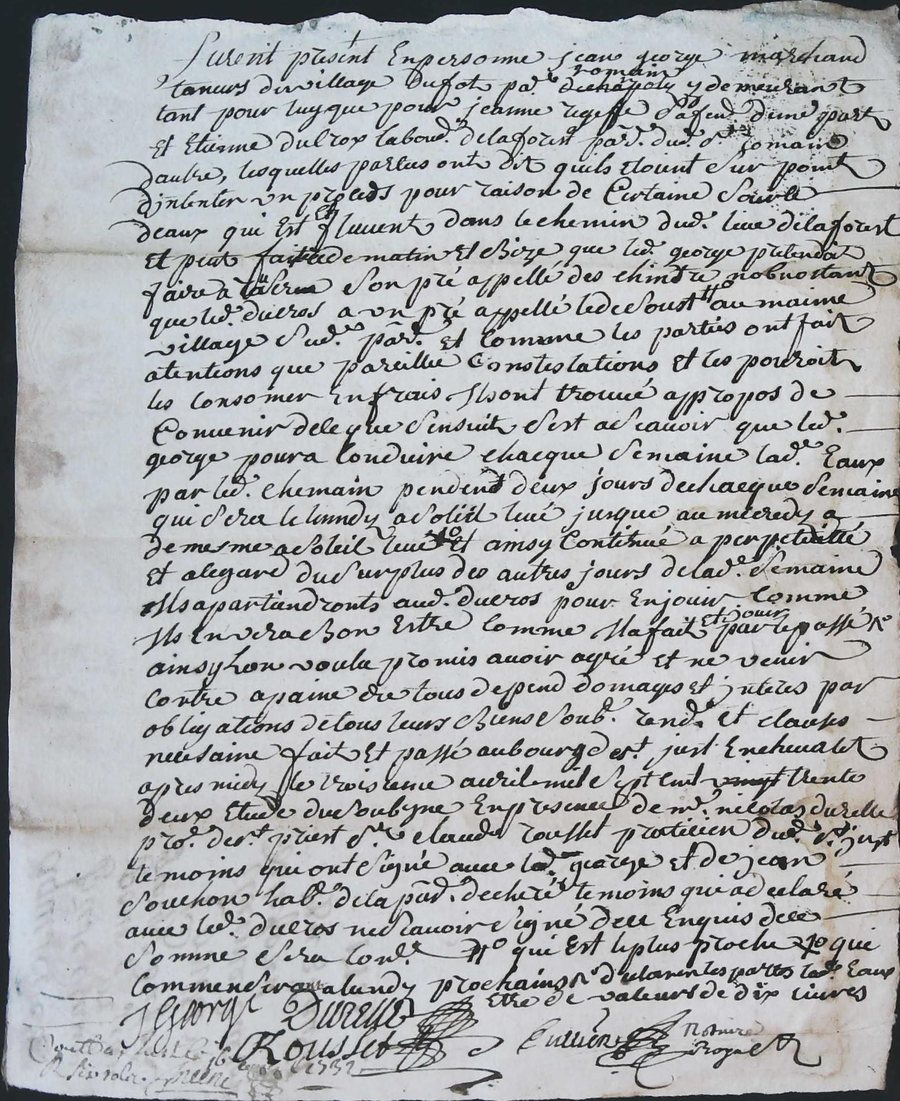 furent présent En personne jean george marchand
taneurs du village Dufot par. romain dechapoly y demeurant
tant pour luy que pour jeanne sa fem. d'une part
Et Etienne duCros labou.r delaforest par. dud. st romain
dautre, lesquelles parties ont dit quils Etoint Sur point
dintenter un proceds pour raison de Certaine Source
deaux qui Est Et fluent dans le chemin dud. lieu delaforest
Et peut faite de matin Et que led. george pretendoit
faire a Son pré appellé des nobnostant
que led. ducros a un pré appellé ledesoust #o au maime
village Sud. par. Et Comme les parties ont fait
atentions que pareillie Constestations Et les pouroit
les consomer En frais Ils ont trouvé appropos de
Convenir de le que Sensuit Sest a Scavoir que led.
george poura Conduire chacque Semaine lad.e Eaux
par led. chemain pendent deux jours de chacque Semaine
qui Sera le lundy a Soleil levé jusque au mécredy a
de mesme a Soleil levé Xo Et ainsy Continué a perpetuitté
Et alegard du Surplus des autres jours de lad.e Semaine
Ils apartiendronts aud. ducros pour En jouir Comme
Ils En vera bon Estre Comme Il a fait Et jouir par le passé
ainsy lon voulu promis avoir agré Et ne venir
Contre a paine de tous depend domages Et interes par
obligations de tous leurs biens Soub. rend. Et clauses
necesaire fait Et passé aubourg de st. just En chevalet
apres midy le troisieme avril mil Sept Cent trente
deux Etude du Soubgne En presence de m.r nicolas durelle
pro.r de st. priest Sr. claude rousset praticien dud. st. just
temoins qui ont Signé avec led. george Et de jean
Souchon hab. de la par. de cheré temoins qui a declaré
avec led. ducros ne Scavoir Signé de ce Enquis de ce
Somme Sera Con. #o qui Est le plus proche Xo qui
Commensera a lundy prochains declarent les parties lad. Eaux
Etre de valeurs de dix livres
J George Durelle
Rousset
Notaire
Royal
1732